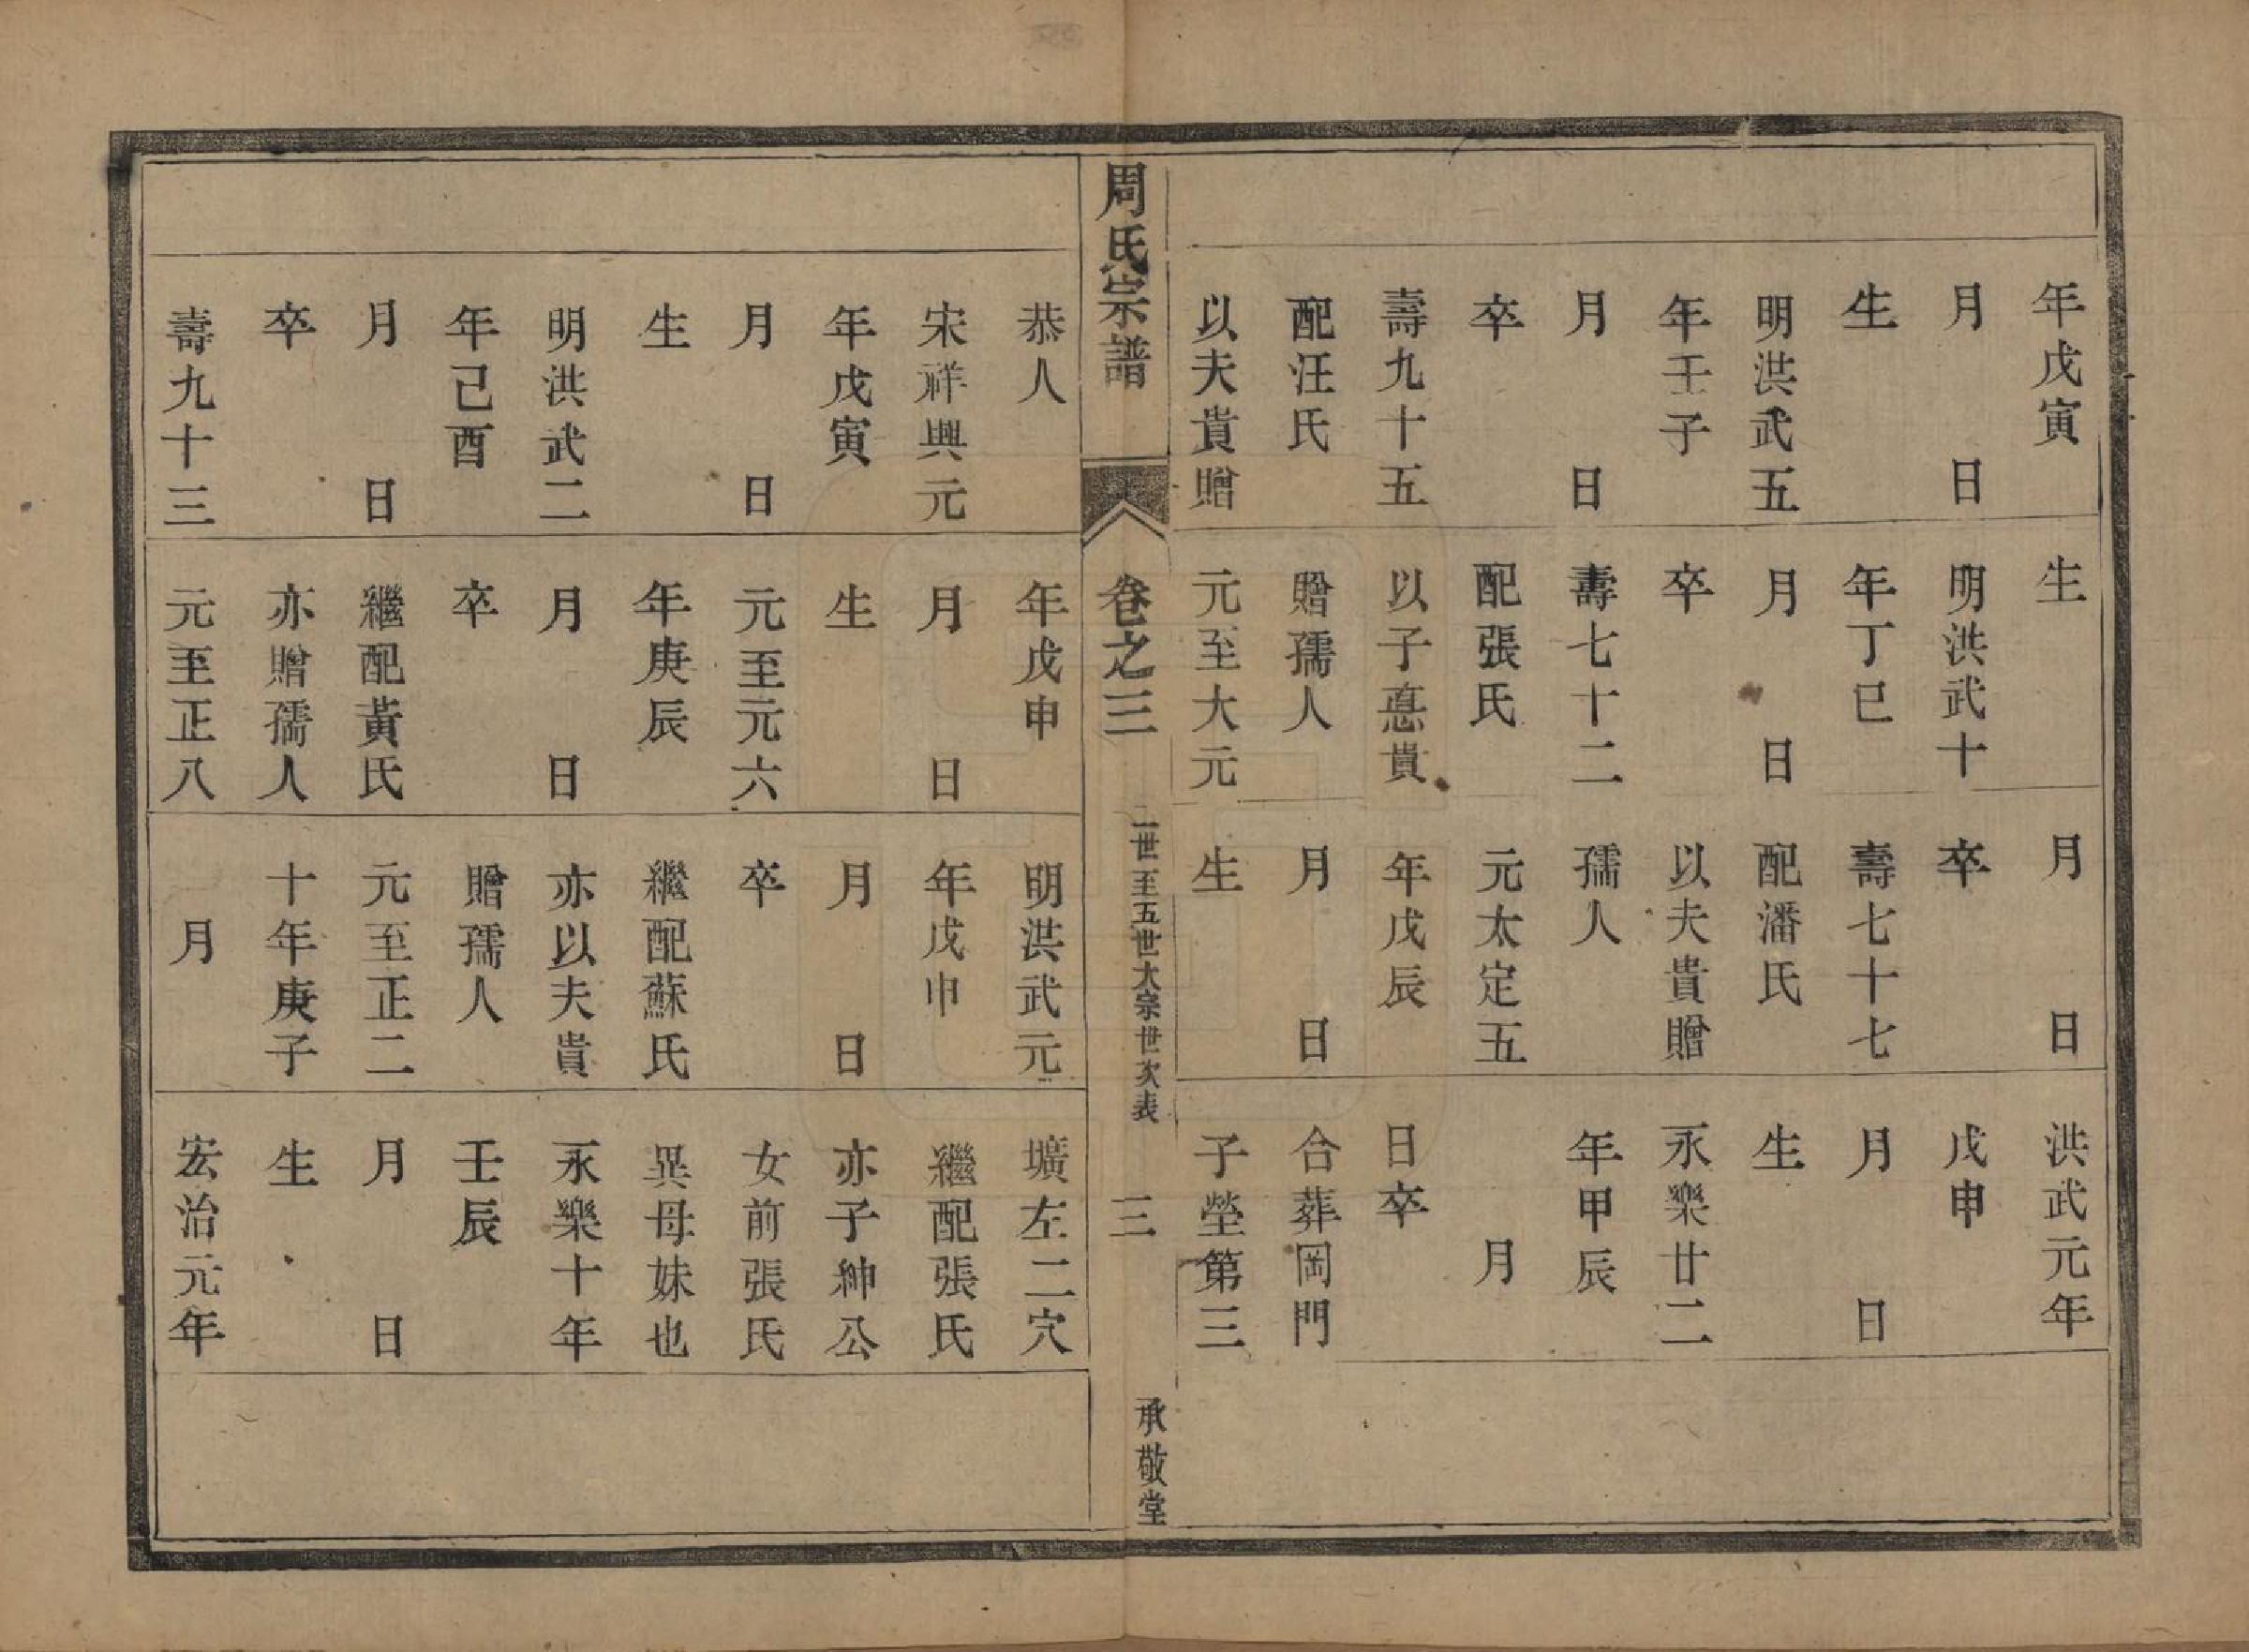 年戊寅
月　日
生
明洪武五
年壬子
月　日
卒
壽九十五
配汪氏
以夫貴贈
生
明洪武十
年丁巳
月　日
卒
壽七十二
配張氏
以子惪貴
贈孺人
元至大元
月　日
卒
壽七十七
配潘氏
以夫貴贈
孺人
元太定五
年戊辰
月　日
生
洪武元年
戊申
月　日
生
永樂廿二
年甲辰
月
日卒
合葬岡門
子塋第三
周氏宗譜
卷之三
二世至五世大宗世次表
三
承敬堂
恭人
宋祥興元
年戊寅
月　日
生
明洪武二
年己酉
月　日
卒
壽九十三
年戊申
月　日
生
元至元六
年庚辰
月　日
卒
繼配黃氏
亦贈孺人
元至正八
明洪武元
年戊申
月　日
卒
繼配蘇氏
亦以夫貴
贈孺人
元至正二
十年庚子
月
壙左二穴
繼配張氏
亦子紳公
女前張氏
異母妹也
永樂十年
壬辰
月　日
生
宏治元年